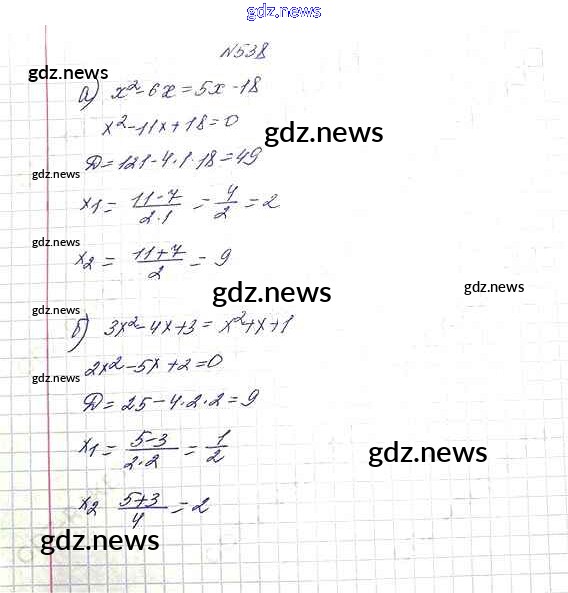 gdz.news
N538
gdz.news
а) x²-6x=5x-18
x²-11x+18=0
gdz.news
Д=121-4·1·18=49
gdz.news
x1= 11-7/2·1 = 4/2 =2
gdz.news
x2= 11+7/2 = 9
gdz.news
gdz.news
gdz.news
б) 3x²-4x+3=x²+x+1
2x²-5x+2=0
gdz.news
Д=25-4·2·2=9
x1= 5-3/2·2 = 1/2
gdz.news
x2 5+3/4 =2
gdz.news